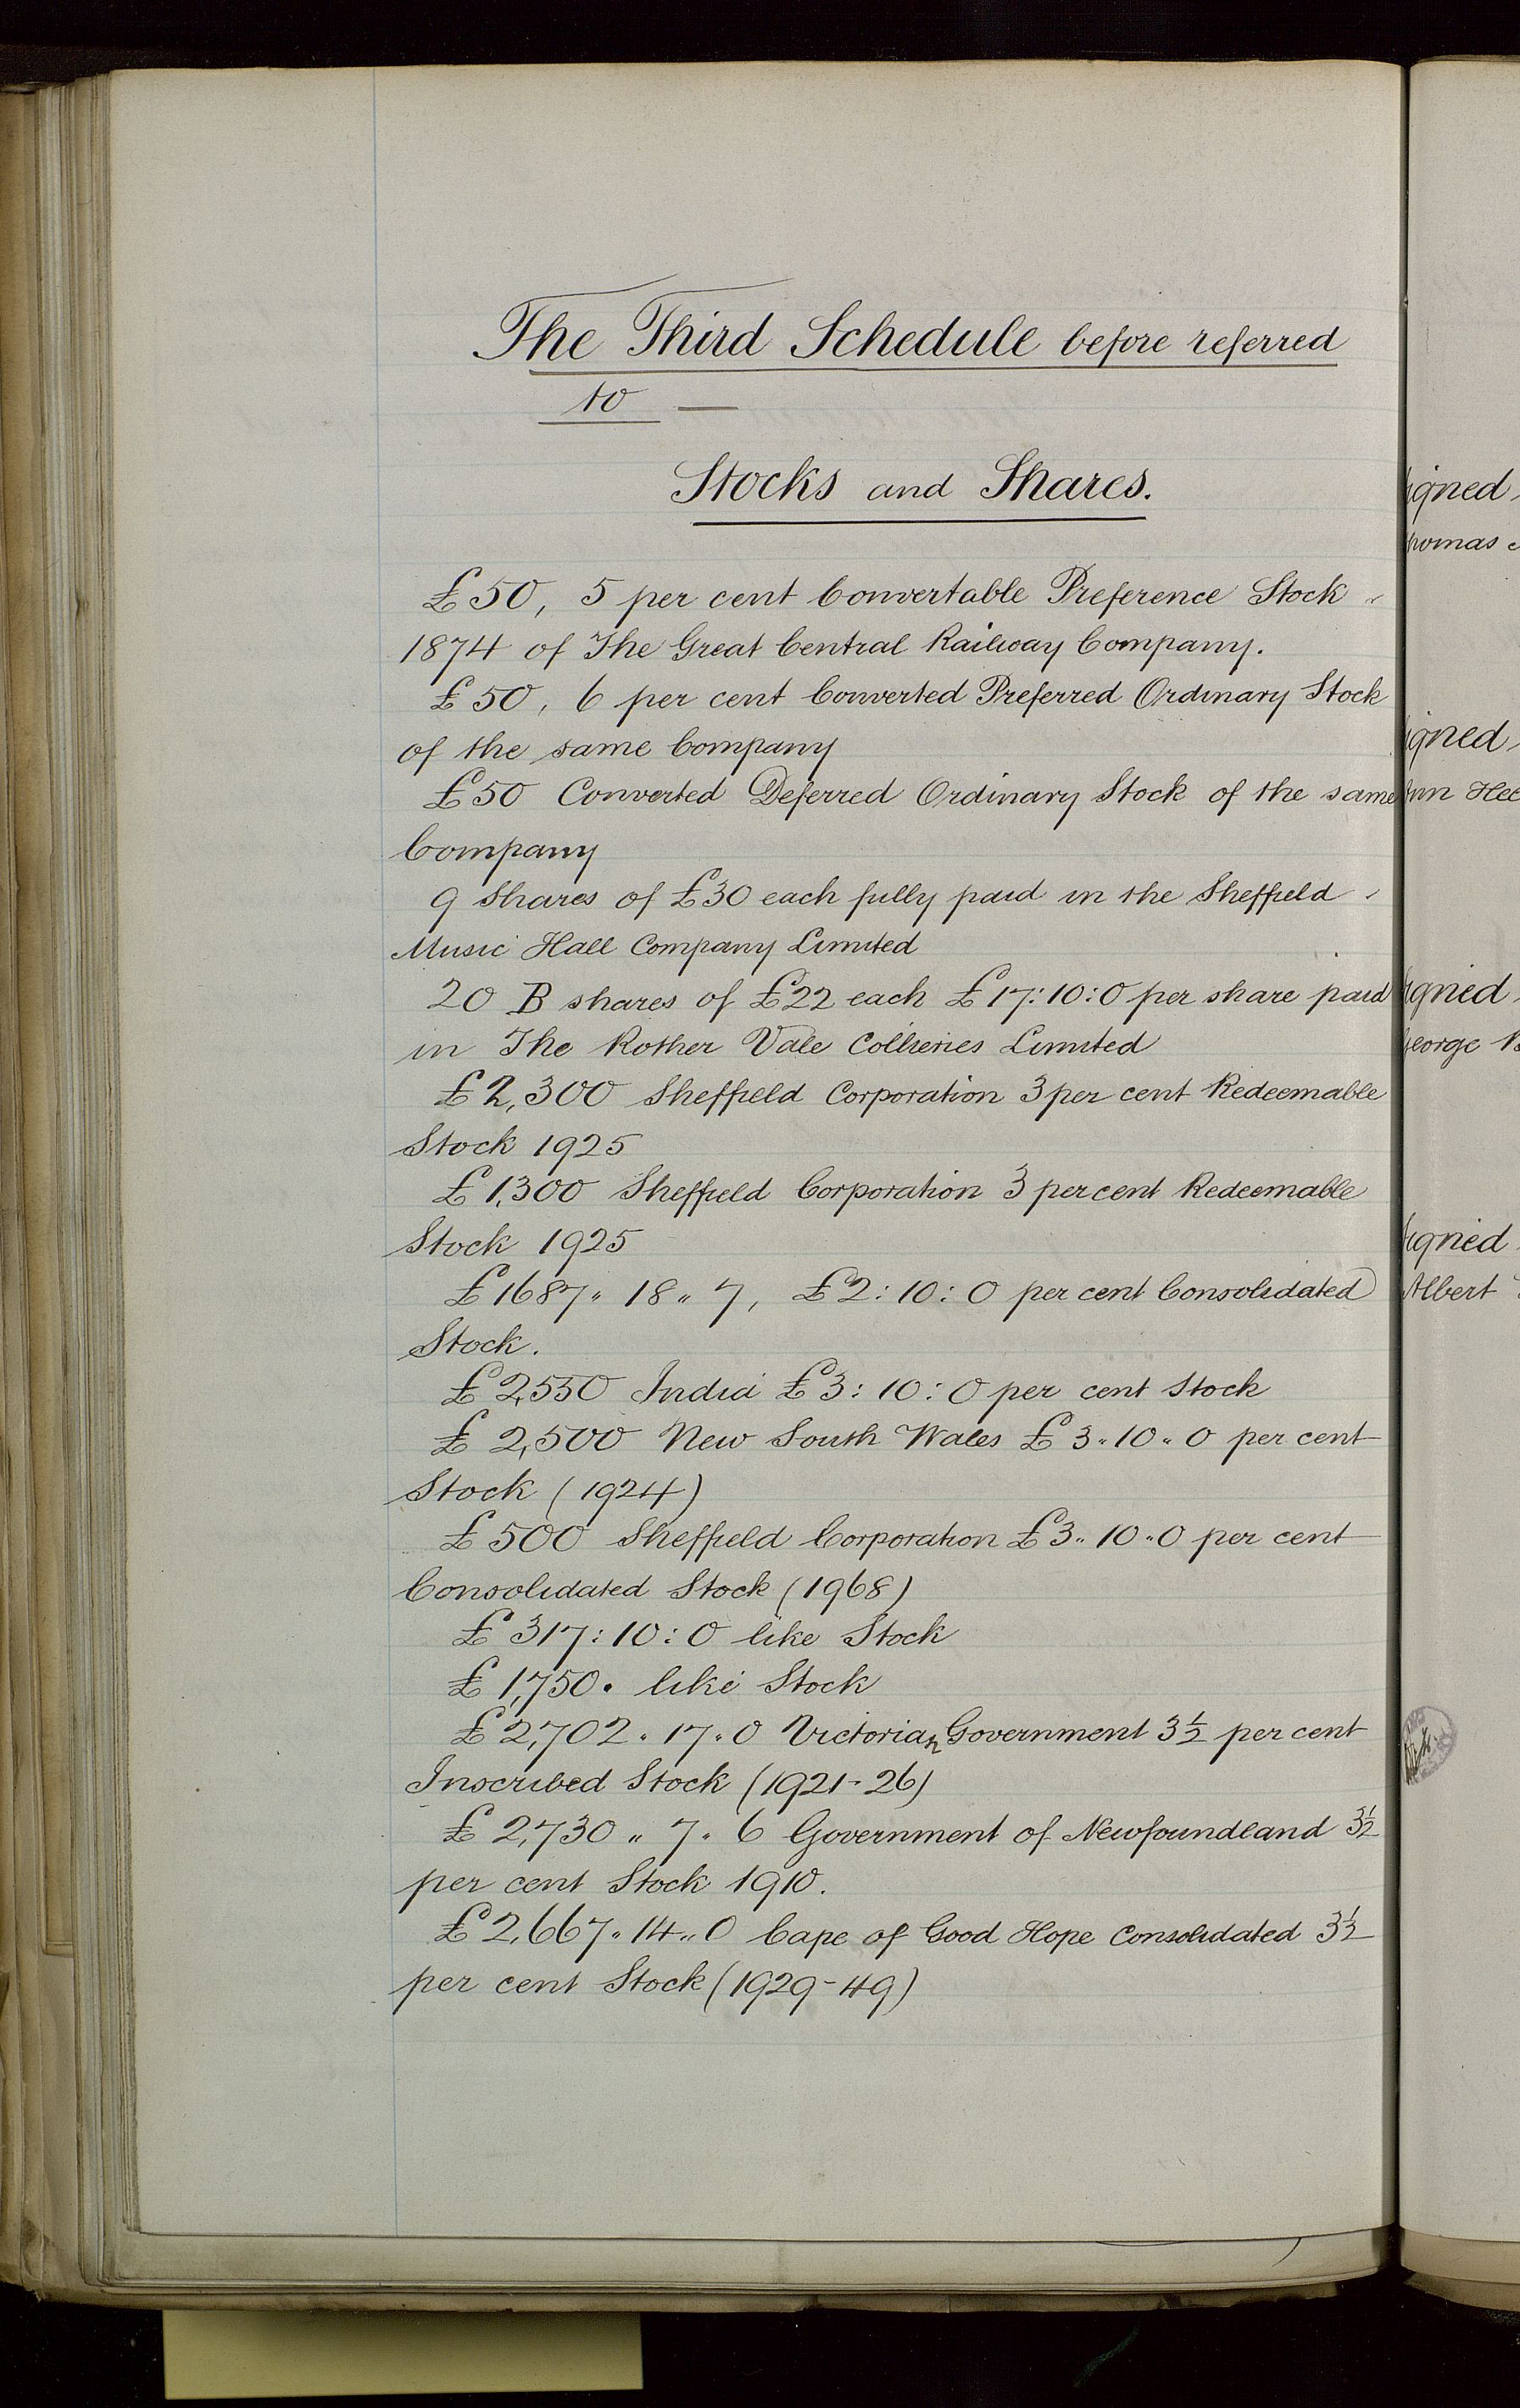 The Third Schedule before referred
to —
Stocks and Shares.
£50, 5 per cent Convertable Preference Stock
1874 of The Great Central Railway Company.
£50, 6 per cent Converted Preferred Ordinary Stock
of the same Company
£50 Converted Deferred Ordinary Stock of the same
Company
9 Shares of £30 each fully paid in the Sheffield
Music Hall Company Limited
20 B shares of £22 each £17:10:0 per share paid
in The Rother Vale Collieries Limited
£2,300 Sheffield Corporation 3 per cent Redeemable
Stock 1925
£1,300 Sheffield Corporation 3 per cent Redeemable
Stock 1925
£1687„ 18„ 7, £2:10:0 per cent Consolidated
Stock.
£2,550 India £3:10:0 per cent Stock
£2,500 New South Wales £3„10„0 per cent
Stock (1924)
£500 Sheffield Corporation £3„10„0 per cent
Consolidated Stock (1968)
£317:10:0 like Stock
£1,750. like Stock
£2,702„17„0 Victorian Government 3½ per cent
Inscribed Stock (1921-26)
£2,730„7„6 Government of Newfoundland 3½
per cent Stock 1910.
£2,667„14„0 Cape of Good Hope Consolidated 3½
per cent Stock (1929-49)
igned
homas
igned
igned
eorge
igned
Albert